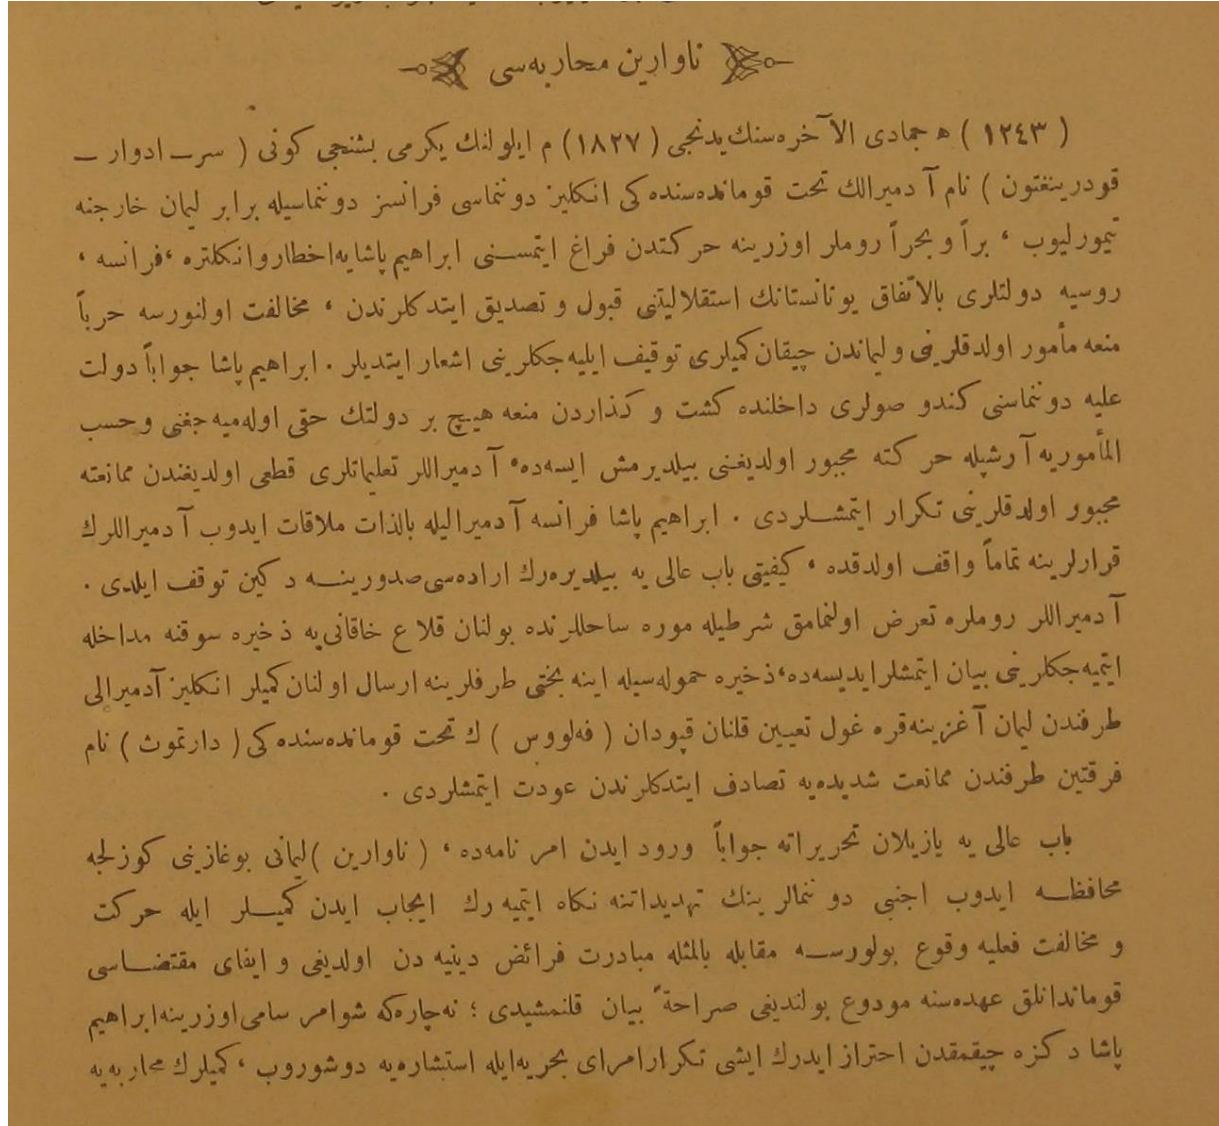 ناوارین محاربه‌سی
( ۱۲٤۳ ) ه جمادی الآخره‌سنك یدنجی ( ۱۸۲۷ ) م ایلولنك یكرمی بشنجی كونی ( سر ــ ادوار ــ
قودرینغتون ) نام آدمیرالك تحت قومانده‌سنده كی انكلیز دوننماسی فرانسز دوننماسیله برابر لیمان خارجنه
تیمورلیوب ، براً و بحراً روملر اوزرینه حركتدن فراغ ایتمســنی ابراهیم پاشایه اخطار وانكلتره ، فرانسه ،
روسیه دولتلری بالاتفاق یونانستانك استقلالیتنی قبول و تصدیق ایتدكلرندن ، مخالفت اولنورسه حرباً
منعه مأمور اولدقلرینی و لیماندن چیقان كمیلری توقیف ایلیه‌جكلرینی اشعار ایتدیلر . ابراهیم پاشا جواباً دولت
علیه دوننماسنی كندو صولری داخلنده كشت و كذاردن منعه هیچ بر دولتك حقی اوله‌میه‌جغنی و حسب
المأموریه آرشپله حركته مجبور اولدیغنی بیلدیرمش ایسه‌ده ، آدمیراللر تعلیماتلری قطعی اولدیغندن ممانعته
مجبور اولدقلرینی تكرار ایتمشــلردی . ابراهیم پاشا فرانسه آدمیرالیله بالذات ملاقات ایدوب آدمیراللرك
قرارلرینه تماماً واقف اولدقده ، كیفیتی باب عالی یه بیلدیره‌رك اراده‌سی صدورینــه دكین توقف ایلدی .
آدمیراللر روملره تعرض اولنمامق شرطیله موره ساحللرنده بولنان قلاع خاقانی‌یه ذخیره سوقنه مداخله
ایتمیه‌جكلرینی بیان ایتمشلر ایدیسه‌ده ، ذخیره حموله‌سیله اینه بختی طرفلرینه ارسال اولنان كمیلر انكلیز آدمیرالی
طرفندن لیمان آغزینه قره غول تعیین قلنان قپودان ( فه‌لووس ) ك تحت قومانده‌سنده كی ( دارتموث ) نام
فرقتین طرفندن ممانعت شدیده‌یه تصادف ایتدكلرندن عودت ایتمشلردی .
باب عالی یه یازیلان تحریراته جواباً ورود ایدن امر نامه‌ده ، ( ناوارین ) لیمانی بوغازینی كوزلجه
محافظــه ایدوب اجنبی دوننمالرینك تهدیداتنه نكاه ایتمیه رك ایجاب ایدن كمیــلر ایله حركت
و مخالفت فعلیه وقوع بولورســه مقابله بالمثله مبادرت فرائض دینیه دن اولدیغی و ایفای مقتضــاسی
قوماندانلق عهده‌سنه مودوع بولندیغی صراحةً بیان قلنمشیدی ؛ نه‌چاره‌كه شو امر سامی اوزرینه ابراهیم
پاشا دكزه چیقمقدن احتراز ایدرك ایشی تكرار امرای بحریه ایله استشاره‌یه دوشوروب ، كمیلرك محاربه‌یه